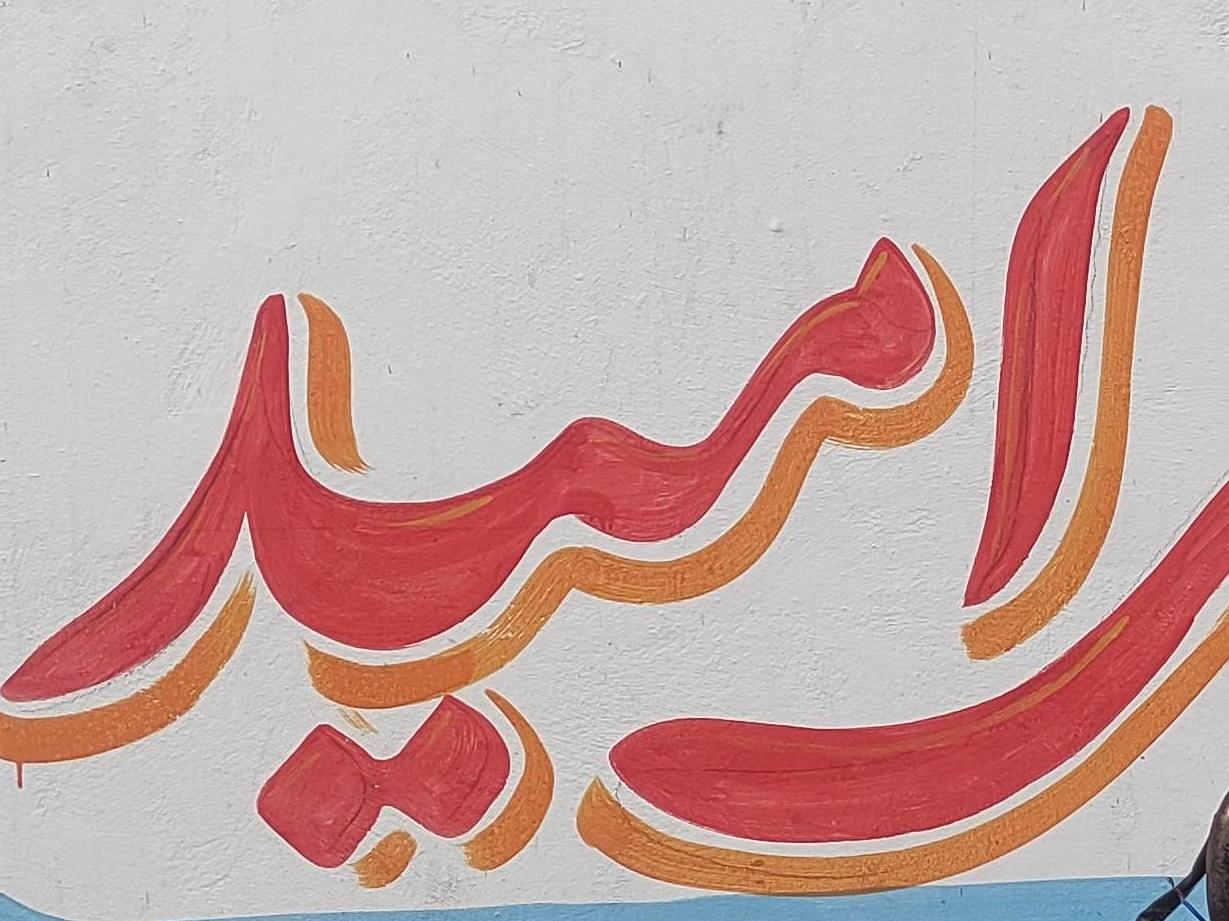 امید